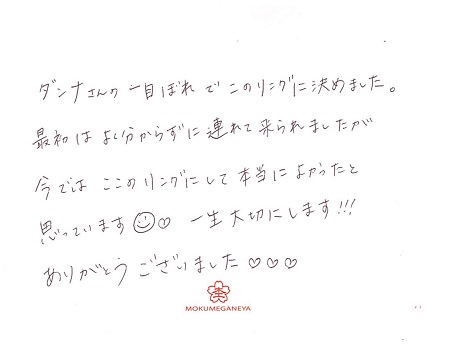 ダンナさんの一目ぼれでこのリングに決めました。
最初はよく分からずに連れて来られましたが
今ではここのリングにして本当によかったと
思っています☺♡ 一生大切にします!!!
ありがとうございました♡♡♡
MOKUMEGANEYA